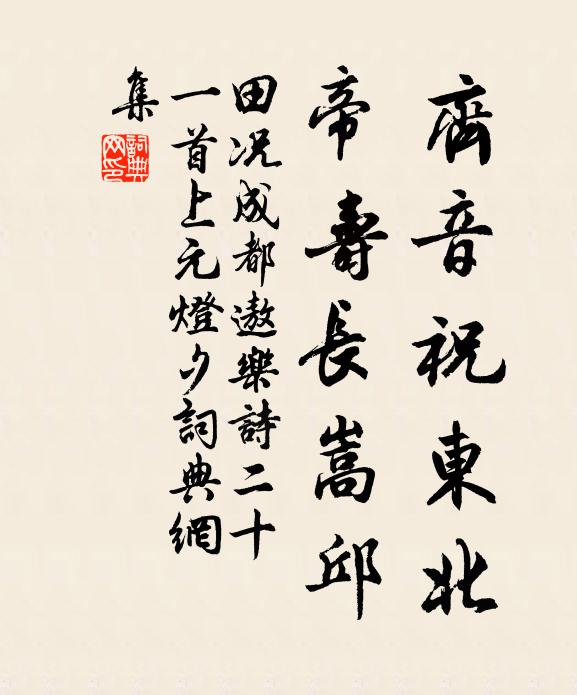 齊音祝東北
帝壽長嵩邱
田况成都遨樂詩二十
一首上元燈夕詞典網
集
詞典網印